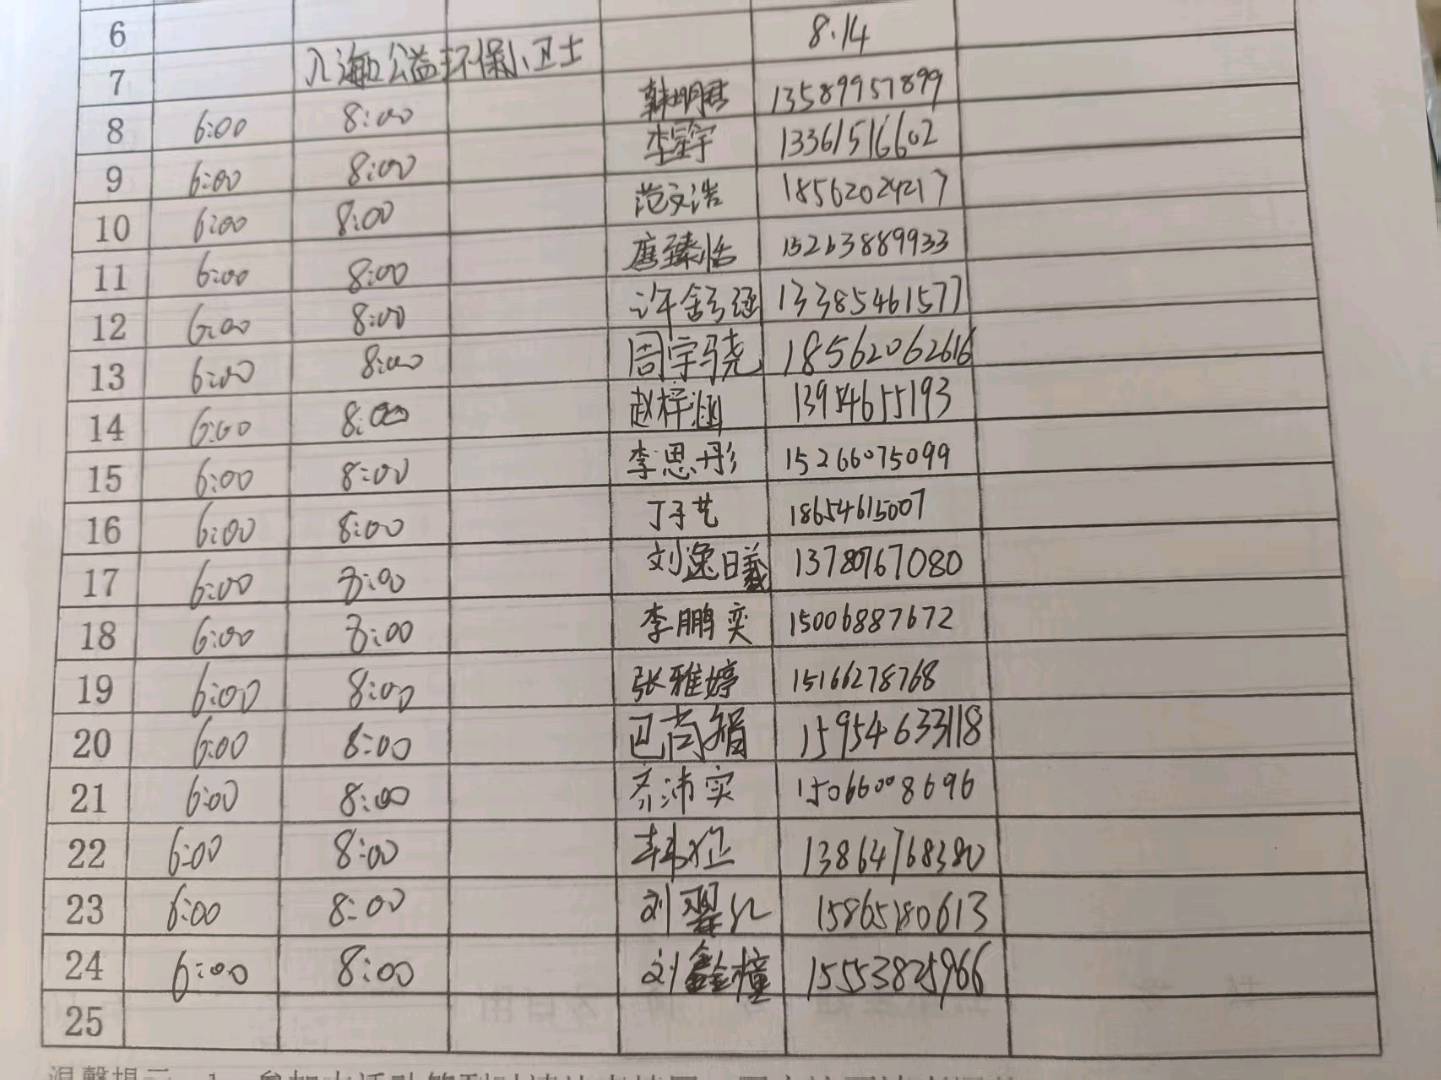 6 8.14
7 入海公益环保小卫士
8 6:00 8:00 韩明君 13589957899
9 6:00 8:00 李宇 13361516602
10 6:00 8:00 范文浩 18562024217
11 6:00 8:00 唐臻怡 15263889933
12 6:00 8:00 许涵 13385461577
13 6:00 8:00 周宇骁 18562062616
14 6:00 8:00 赵梓涵 13954655193
15 6:00 8:00 李思彤 15266075099
16 6:00 8:00 丁子艺 18654615007
17 6:00 8:00 刘逸曦 13780767080
18 6:00 8:00 李鹏奕 15006887672
19 6:00 8:00 张雅婷 15166278768
20 6:00 8:00 巴尚 15954633118
21 6:00 8:00 齐沛实 15066008696
22 6:00 8:00 韩 13864768380
23 6:00 8:00 刘 15865180613
24 6:00 8:00 刘鑫橦 15553825966
25